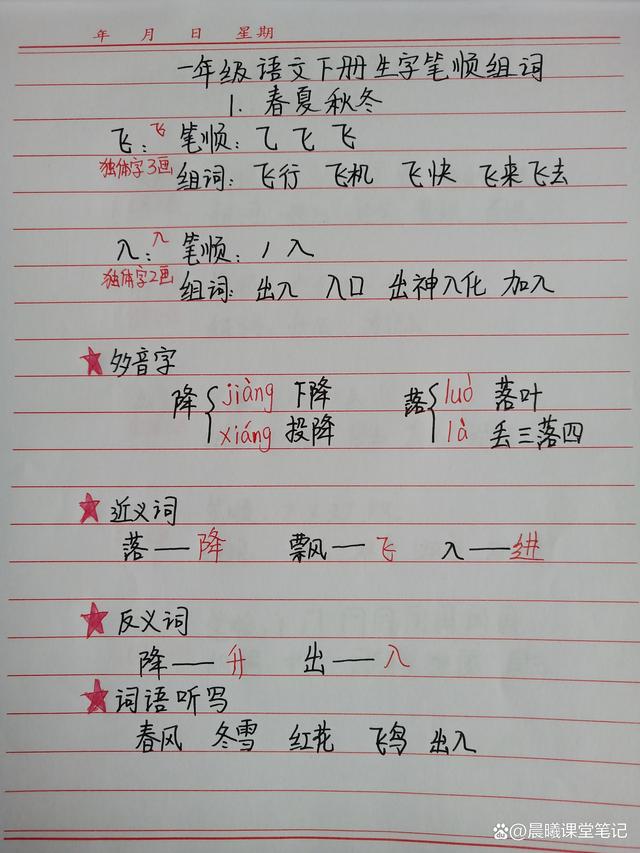 年 月 日 星期
一年级语文下册生字笔顺组词
1. 春夏秋冬
飞：飞 笔顺：乁 飞 飞
独体字3画 组词：飞行 飞机 飞快 飞来飞去
入：入 笔顺：丿 入
独体字2画 组词：出入 入口 出神入化 加入
★多音字
降{ jiàng 下降 落{ luò 落叶
xiáng 投降 là 丢三落四
★近义词
落——降 飘——飞 入——进
★反义词
降——升 出——入
★词语听写
春风 冬雪 红花 飞鸟 出入
晨曦课堂笔记